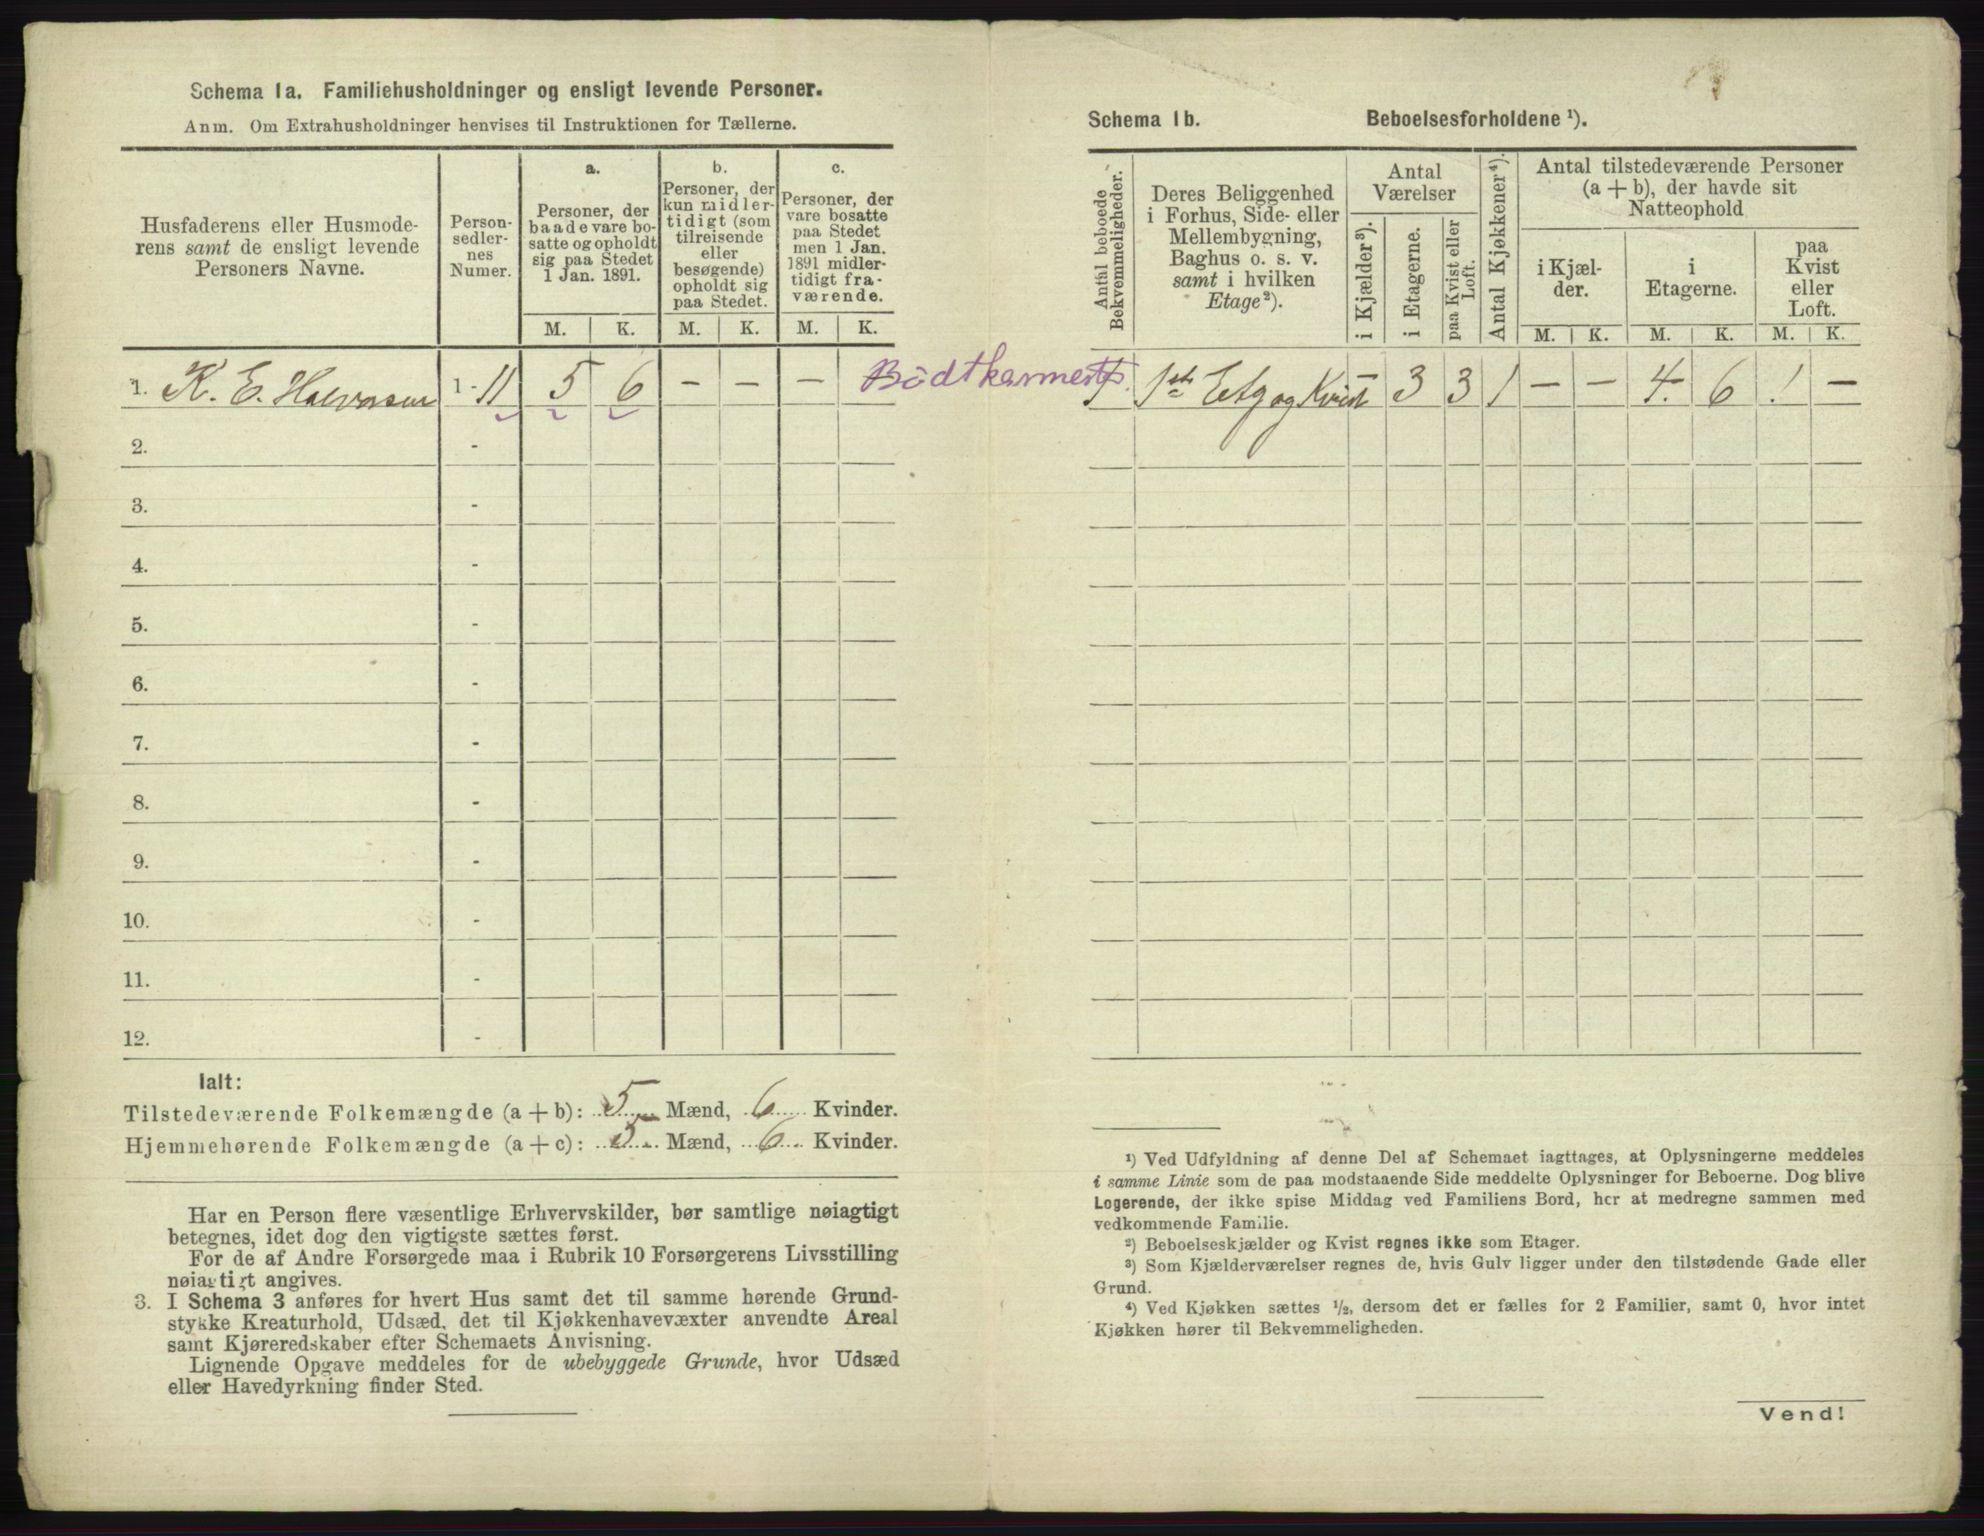 Schema 1a. Familiehusholdninger og ensligt levende Personer.
Anm. Om Extrahusholdninger henvises til Instruktionen for Tællerne.
Husfaderens eller Husmode-
rens samt de ensligt levende
Personers Navne.
Person-
sedler-
nes
Numer.
a.
Personer, der
baade vare bo-
satte og opholdt
sig paa Stedet
1 Jan. 1891.
b.
Personer, der
kun midler-
tidigt (som
tilreisende
eller
besøgende)
opholdt sig
paa Stedet.
c.
Personer, der
vare bosatte
paa Stedet
men 1 Jan.
1891 midler-
tidigt fra-
værende.
M. K. M. K. M. K.
1. K. E. Halvorsen 1 - 11 5 6 – – –
2. -
3. -
4. -
5. -
6. -
7. -
8. -
9. -
10. -
11. -
12. -
Ialt:
Tilstedeværende Folkemængde (a + b): 5 Mænd, 6 Kvinder.
Hjemmehørende Folkemængde (a + c): 5 Mænd, 6 Kvinder.
Har en Person flere væsentlige Erhvervskilder, bør samtlige nøiagtigt
betegnes, idet dog den vigtigste sættes først.
For de af Andre Forsørgede maa i Rubrik 10 Forsørgerens Livsstilling
nøiagtigt angives.
3. I Schema 3 anføres for hvert Hus samt det til samme hørende Grund-
stykke Kreaturhold, Udsæd, det til Kjøkkenhavevæxter anvendte Areal
samt Kjøreredskaber efter Schemaets Anvisning.
Lignende Opgave meddeles for de ubebyggede Grunde, hvor Udsæd
eller Havedyrkning finder Sted.
Schema 1b. Beboelsesforholdene ¹).
Antal beboede
Bekvemmeligheder.
Deres Beliggenhed
i Forhus, Side- eller
Mellembygning,
Baghus o. s. v.
samt i hvilken
Etage ²).
Antal
Værelser
i Kjælder ³).
i Etagerne.
paa Kvist eller
Loft.
Antal Kjøkkener ⁴).
Antal tilstedeværende Personer
(a + b), der havde sit
Natteophold
i Kjæl-
der.
i
Etagerne.
paa
Kvist
eller
Loft.
M. K. M. K. M. K.
1 1ste Etg og Kvist – 3 3 1 – – 4 6 1 –
¹) Ved Udfyldning af denne Del af Schemaet iagttages, at Oplysningerne meddeles
i samme Linie som de paa modstaaende Side meddelte Oplysninger for Beboerne. Dog blive
Logerende, der ikke spise Middag ved Familiens Bord, her at medregne sammen med
vedkommende Familie.
²) Beboelseskjælder og Kvist regnes ikke som Etager.
³) Som Kjælderværelser regnes de, hvis Gulv ligger under den tilstødende Gade eller
Grund.
⁴) Ved Kjøkken sættes ½, dersom det er fælles for 2 Familier, samt 0, hvor intet
Kjøkken hører til Bekvemmeligheden.
Vend!